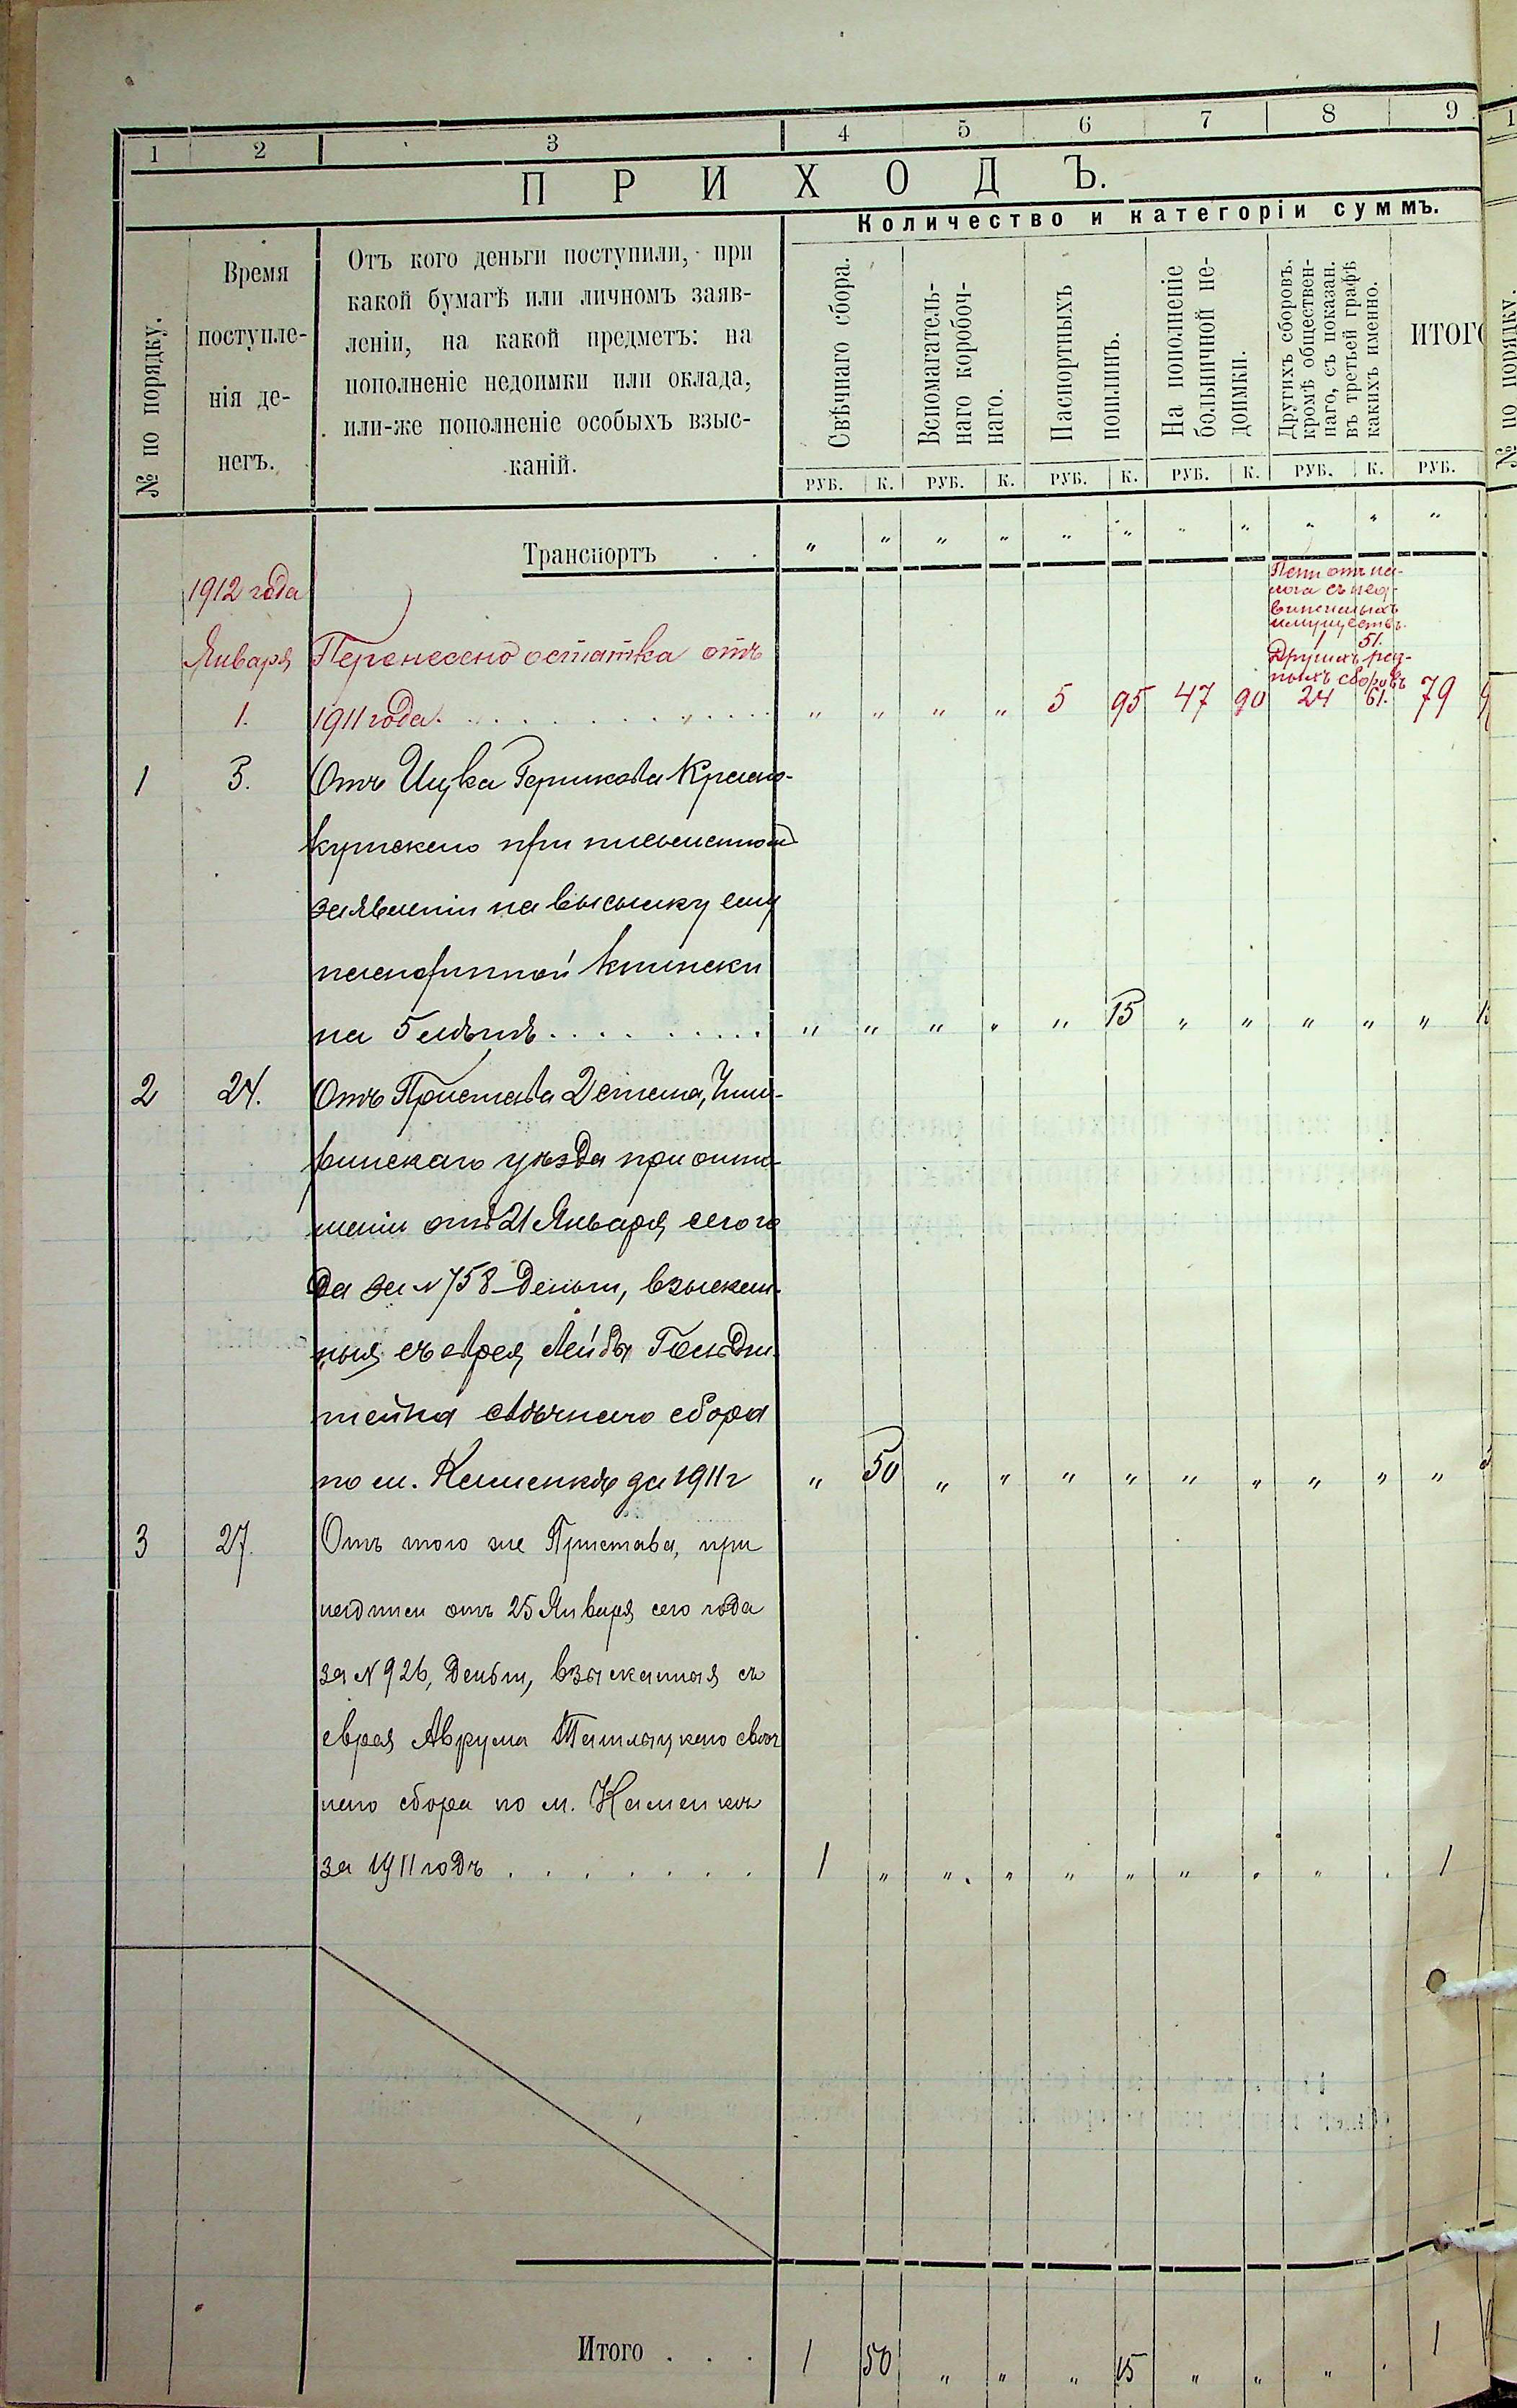 1 2 3 4 5 6 7 8 9
ПРИХОДЪ.
Количество и категоріи суммъ.
№ по порядку.
Время
поступле-
нія де-
негъ.
Отъ кого деньги поступили, при
какой бумагѣ или личномъ заяв-
леніи, на какой предметъ: на
пополненіе недоимки или оклада,
или-же пополненіе особыхъ взыс-
каній.
Свѣчнаго сбора.
Вспомагатель-
наго коробоч-
наго.
Паспортныхъ
пошлинъ.
На пополненіе
больничной не-
доимки.
Другихъ сборовъ,
кромѣ обществен-
наго, съ показан.
въ третьей графѣ
какихъ именно.
ИТОГО
РУБ. К. РУБ. К. РУБ. К. РУБ. К. РУБ. К. РУБ.
Транспортъ . . " " " " " " " " " " "
1912 года
Пени отъ на-
лога съ нед-
вижимыхъ
имуществъ.
1 51.
Января Перенесено остатка отъ
Другихъ раз-
ныхъ сборовъ
1. 1911 года " " " " 5 95 47 90 24 61. 79
1 3. Отъ Ицка Гершкова
при письменном
заявленіи на высылку ему
паспортной книжки
на 5 лѣтъ " " " " " 15 " " " " "
2 24. Отъ Пристава 2 стана, Чиги-
ринскаго уѣзда при отно-
шеніи отъ 21 Января сего го
да за № 758 деньги, взыскан-
ныя съ еврея Лейбы Гольдш
тейна свѣчнаго сбора
по м. Каменкѣ за 1911 г " 50 " " " " " " " " "
3 27. Отъ того же Пристава, при
надписи отъ 25 Января сего года
за № 926, деньги, взысканныя съ
еврея Аврума Ташлыцкаго свѣч
наго сбора по м. Каменкѣ
за 1911 годъ . . . . . . . 1 " " " " " " " " " 1
Итого . . . 1 50 " " " 15 " " " " 1